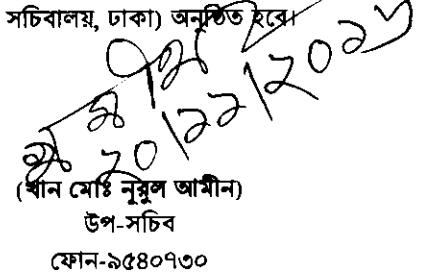 সচিবালয়, ঢাকা) অনুষ্ঠিত হবে।
(খান মোঃ নূরুল আমীন)
উপ-সচিব
ফোন-৯৫৪০৭৩০